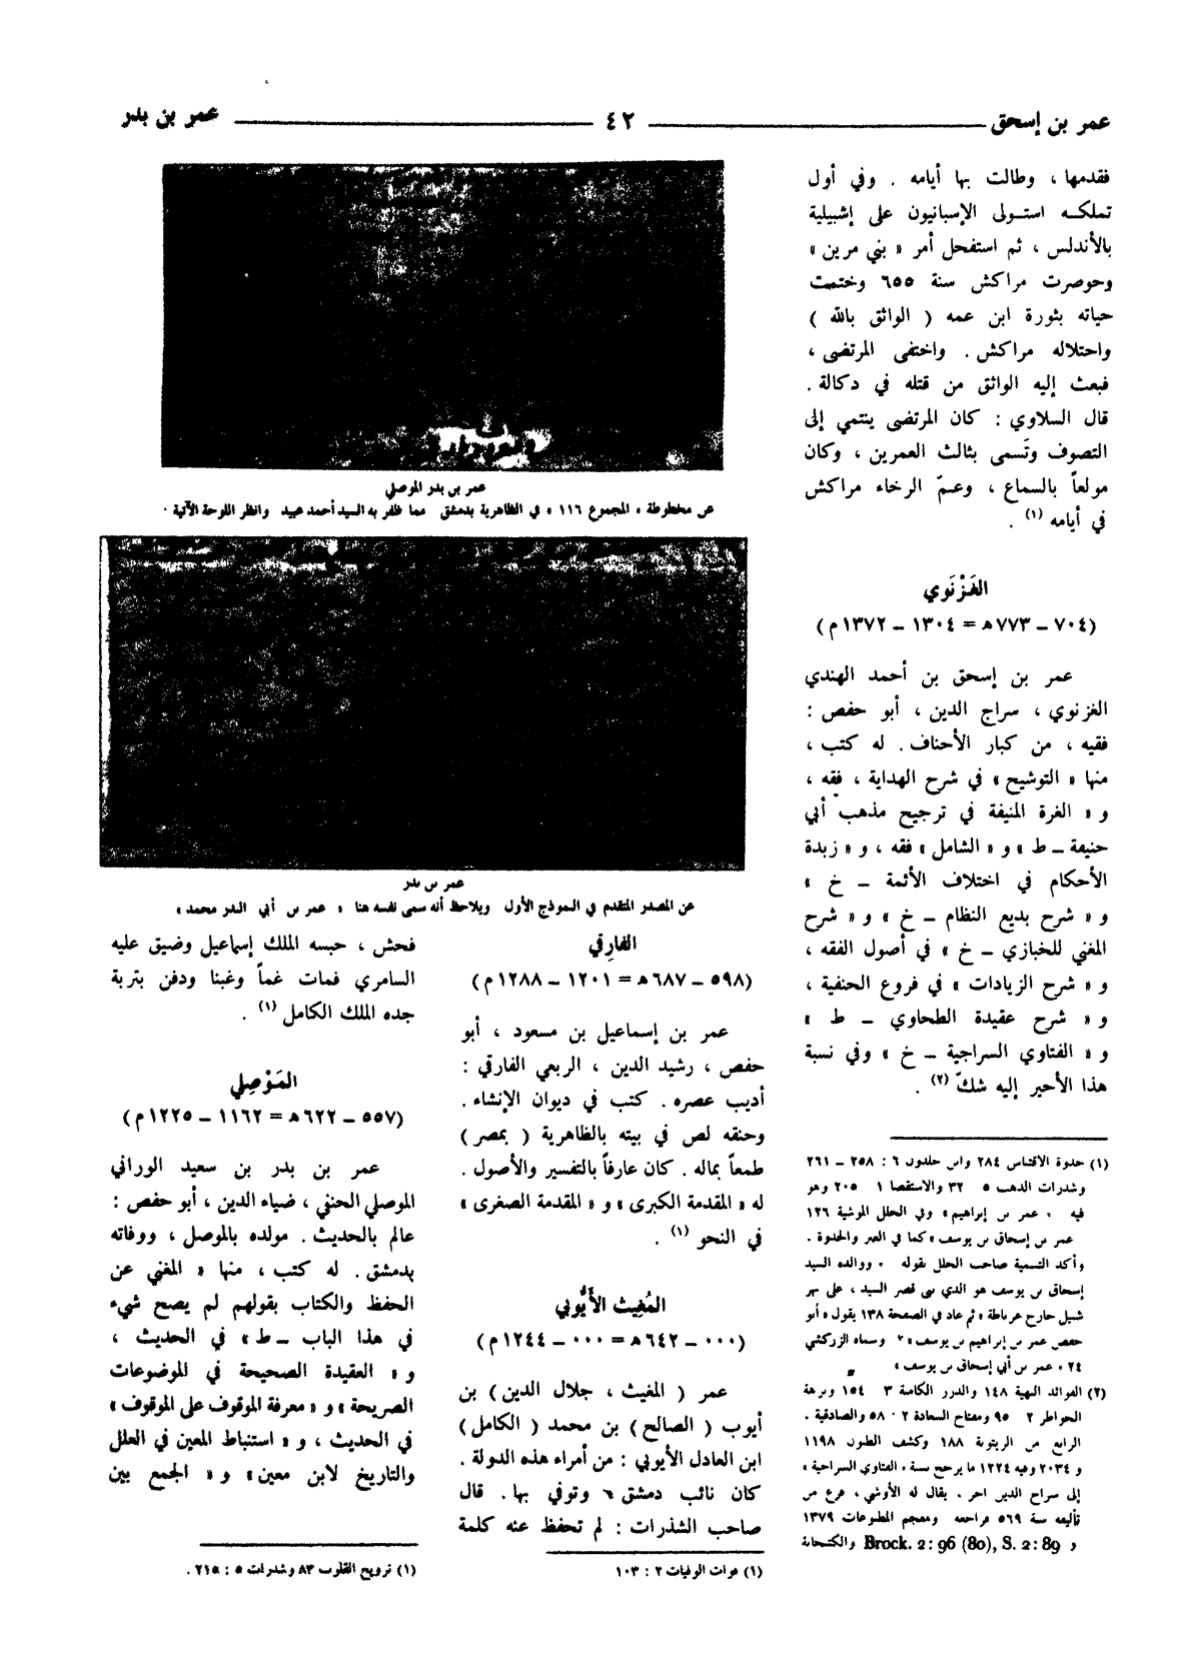 عمر بن إسحق
٤٢
عمر بن بدر
فقدمها ، وطالت بها أيامه . وفي أول
تملكه استولى الإسبانيون على إشبيلية
بالأندلس ، ثم استفحل أمر « بني مرين »
وحوصرت مراكش سنة ٦٥٥ وختمت
حياته بثورة ابن عمه ( الواثق بالله )
واحتلاله مراكش . واختفى المرتضى ،
فبعث إليه الواثق من قتله في دكالة .
قال السلاوي : كان المرتضى ينتمي إلى
التصوف وتَسمى بثالث العمرين ، وكان
مولعاً بالسماع ، وعمّ الرخاء مراكش
في أيامه (١) .
الغَزْنَوي
(٧٠٤ – ٧٧٣ ه = ١٣٠٤ – ١٣٧٢ م)
عمر بن إسحق بن أحمد الهندي
الغزنوي ، سراج الدين ، أبو حفص :
فقيه ، من كبار الأحناف . له كتب ،
منها « التوشيح » في شرح الهداية ، فقه ،
و « الغرة المنيفة في ترجيح مذهب أبي
حنيفة – ط » و « الشامل » فقه ، و « زبدة
الأحكام في اختلاف الأئمة – خ »
و « شرح بديع النظام – خ » و « شرح
المغني للخبازي – خ » في أصول الفقه ،
و « شرح الزيادات » في فروع الحنفية ،
و « شرح عقيدة الطحاوي – ط »
و « الفتاوي السراجية – خ » وفي نسبة
هذا الأخير إليه شكّ (٢) .
(١) جذوة الاقتباس ٢٨٤ وابن خلدون ٦ : ٢٥٨ – ٢٦١
وشذرات الذهب ٥ ٣٢ والاستقصا ١ ٢٠٥ وهو
فيه « عمر بن إبراهيم » وفي الحلل الموشية ١٢٦
عمر بن إسحاق بن يوسف » كما في العبر والجذوة .
وأكد التسمية صاحب الحلل بقوله « ووالده السيد
إسحاق بن يوسف هو الذي بنى قصر السيد ، على نهر
شنيل خارج غرناطة » ثم عاد في الصفحة ١٣٨ يقول « أبو
حفص عمر بن إبراهيم بن يوسف » وسماه الزركشي
٢٤ « عمر بن أبي إسحاق بن يوسف »
(٢) الفوائد البهية ١٤٨ والدرر الكامنة ٣ ١٥٤ ونزهة
الخواطر ٢ ٩٥ ومفتاح السعادة ٢ ٥٨ والصادقية .
الرابع من الزيتونة ١٨٨ وكشف الظنون ١١٩٨
و ٢٠٣٤ وفيه ١٢٢٤ ما يرجح نسبة « الفتاوي السراجية »
إلى سراج الدين آخر . يقال له الأوشي ، فرغ من
تأليفه سنة ٥٦٩ فراجعه ومعجم المطبوعات ١٣٧٩
و Brock. 2: 96 (80), S. 2: 89 والكتبخانة
عمر بن بدر الموصلي
عن مخطوطة « المجموع ١١٦ » في الظاهرية بدمشق مما ظفر به السيد أحمد عبيد وانظر اللوحة الآتية .
عمر بن بدر
عن المصدر المتقدم في النموذج الأول ويلاحظ أنه سمى نفسه هنا « عمر بن أبي البدر محمد »
الفارِقي
(٥٩٨ – ٦٨٧ ه = ١٢٠١ – ١٢٨٨ م)
عمر بن إسماعيل بن مسعود ، أبو
حفص ، رشيد الدين ، الربعي الفارقي :
أديب عصره . كتب في ديوان الإنشاء .
وخنقه لص في بيته بالظاهرية ( بمصر )
طمعاً بماله . كان عارفاً بالتفسير والأصول .
له « المقدمة الكبرى » و « المقدمة الصغرى »
في النحو (١) .
المُغِيث الأَيُّوبي
(٠٠٠ – ٦٤٢ ه = ٠٠٠ – ١٢٤٤ م)
عمر ( المغيث ، جلال الدين ) بن
أيوب ( الصالح ) بن محمد ( الكامل )
ابن العادل الأيوبي : من أمراء هذه الدولة .
كان نائب دمشق وتوفي بها . قال
صاحب الشذرات : لم تحفظ عنه كلمة
(١) فوات الوفيات ٢ : ١٠٣
فحش ، حبسه الملك إسماعيل وضيق عليه
السامري فمات غماً وغبنا ودفن بتربة
جده الملك الكامل (١) .
المَوْصِلي
(٥٥٧ – ٦٢٢ ه = ١١٦٢ – ١٢٢٥ م)
عمر بن بدر بن سعيد الوراني
الموصلي الحنفي ، ضياء الدين ، أبو حفص :
عالم بالحديث . مولده بالموصل ، ووفاته
بدمشق . له كتب ، منها « المغني عن
الحفظ والكتاب بقولهم لم يصح شيء
في هذا الباب – ط » في الحديث ،
و « العقيدة الصحيحة في الموضوعات
الصريحة » و « معرفة الموقوف على الموقوف »
في الحديث ، و « استنباط المعين في العلل
والتاريخ لابن معين » و « الجمع بين
(١) ترويح القلوب ٨٣ وشذرات ٥ : ٢١٥ .